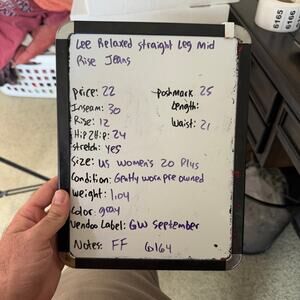 Lee Relaxed straight Leg Mid
Rise Jeans
price: 22 poshmark 25
Inseam: 30 Length:
Rise: 12 Waist: 21
Hip 2 Hip: 24
stretch: yes
Size: US women's 20 Plus
Condition: Gently worn pre owned
weight: 1.04
Color: gray
Vendoo Label: GW September
Notes: FF 6164
6165
6166